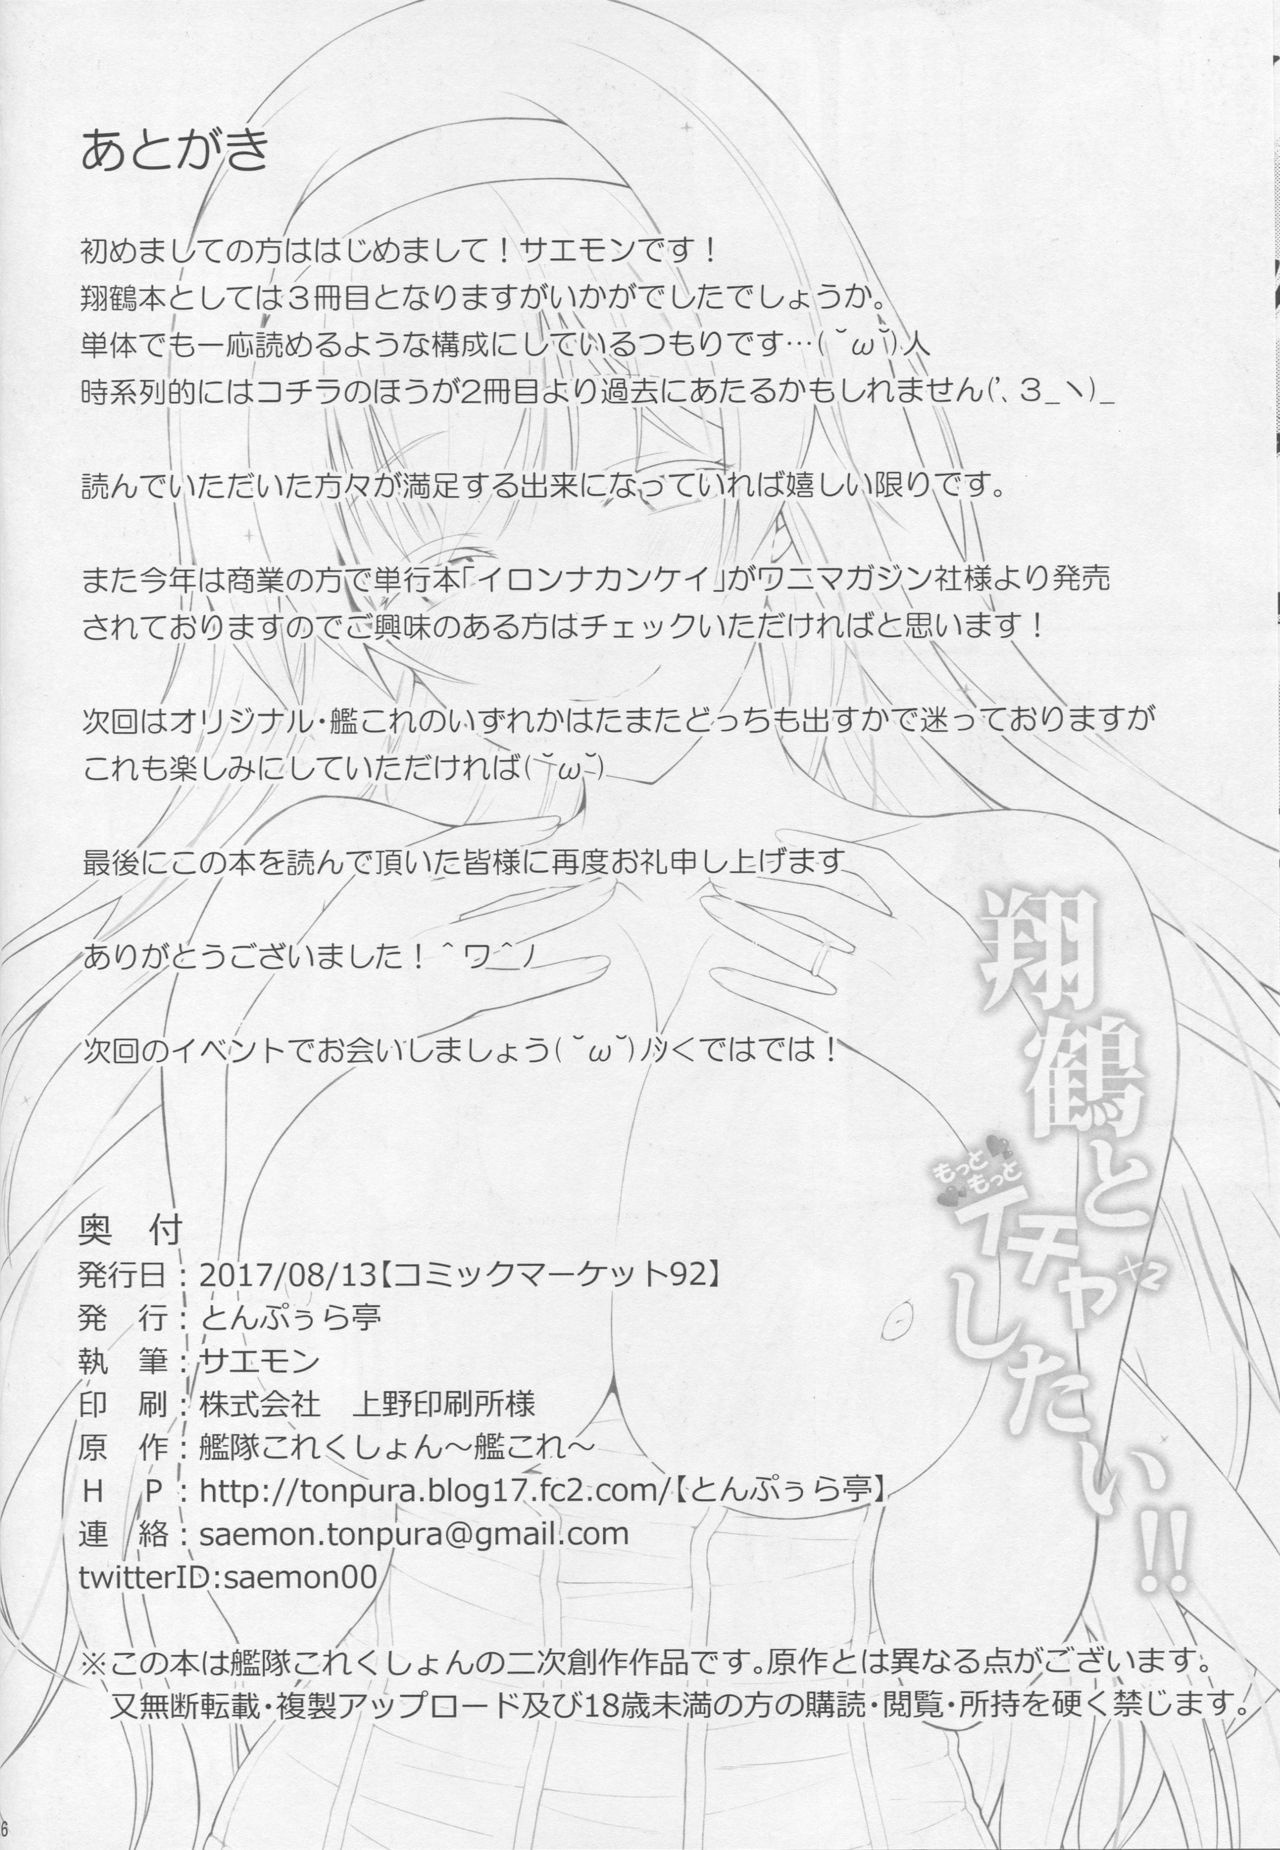 あとがき
初めましての方ははじめまして！サエモンです！
翔鶴本としては３冊目となりますがいかがでしたでしょうか。
単体でも一応読めるような構成にしているつもりです…( ˘ω˘)人
時系列的にはコチラのほうが2冊目より過去にあたるかもしれません('､３_ヽ)_
読んでいただいた方々が満足する出来になっていれば嬉しい限りです。
また今年は商業の方で単行本｢イロンナカンケイ｣がワニマガジン社様より発売
されておりますのでご興味のある方はチェックいただければと思います！
次回はオリジナル・艦これのいずれかはたまたどっちも出すかで迷っておりますが
これも楽しみにしていただければ( ˘ω˘)
最後にこの本を読んで頂いた皆様に再度お礼申し上げます
ありがとうございました！＾ワ＾ノ
次回のイベントでお会いしましょう( ˘ω˘)ﾉｼくではでは！
翔鶴と
もっと
もっと
イチャ×2
したい!!
奥　付
発行日：2017/08/13【コミックマーケット92】
発　行：とんぷぅら亭
執　筆：サエモン
印　刷：株式会社　上野印刷所様
原　作：艦隊これくしょん～艦これ～
Ｈ　Ｐ：http://tonpura.blog17.fc2.com/【とんぷぅら亭】
連　絡：saemon.tonpura@gmail.com
twitterID:saemon00
※この本は艦隊これくしょんの二次創作作品です。原作とは異なる点がございます。
又無断転載・複製アップロード及び18歳未満の方の購読・閲覧・所持を硬く禁じます。
6